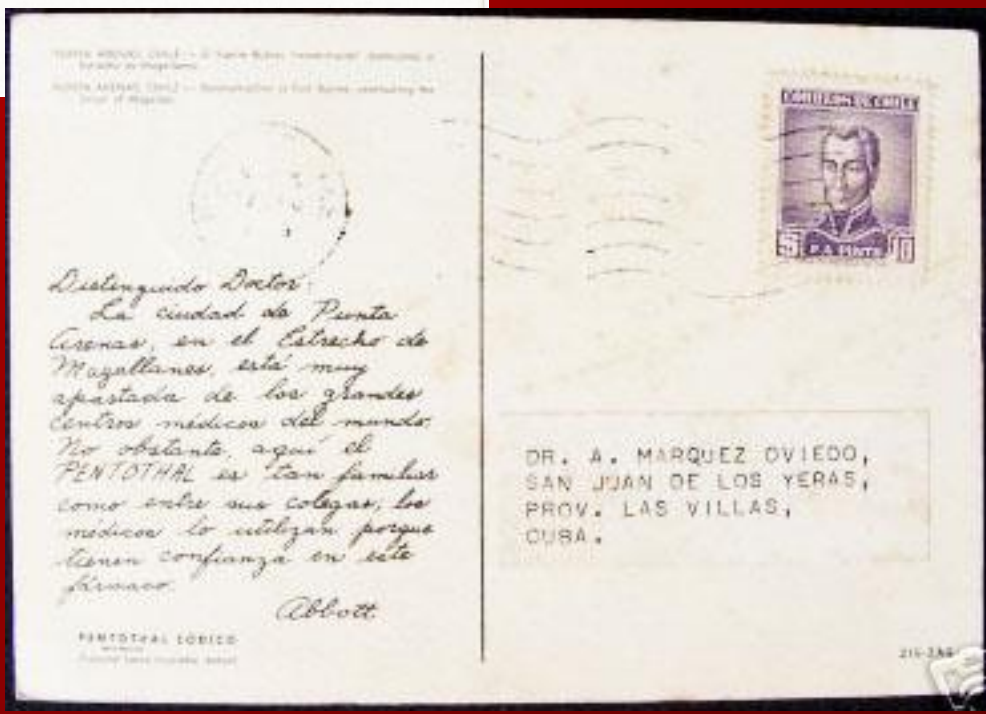 PUNTA ARENAS, CHILE –
Estrecho de Magallanes
PUNTA ARENAS, CHILE – Reconstruction of Fort Bulnes, overlooking the
Strait of Magellan
CORREOS DE CHILE
5 F. A. PINTO 10
Distinguido Doctor:
La ciudad de Punta
Arenas, en el Estrecho de
Magallanes, está muy
apartada de los grandes
centros médicos del mundo.
No obstante, aquí el
PENTOTHAL es tan familiar
como entre sus colegas; los
médicos lo utilizan porque
tienen confianza en este
fármaco.
Abbott.
PENTOTHAL SÓDICO
DR. A. MARQUEZ OVIEDO,
SAN JUAN DE LOS YERAS,
PROV. LAS VILLAS,
CUBA.